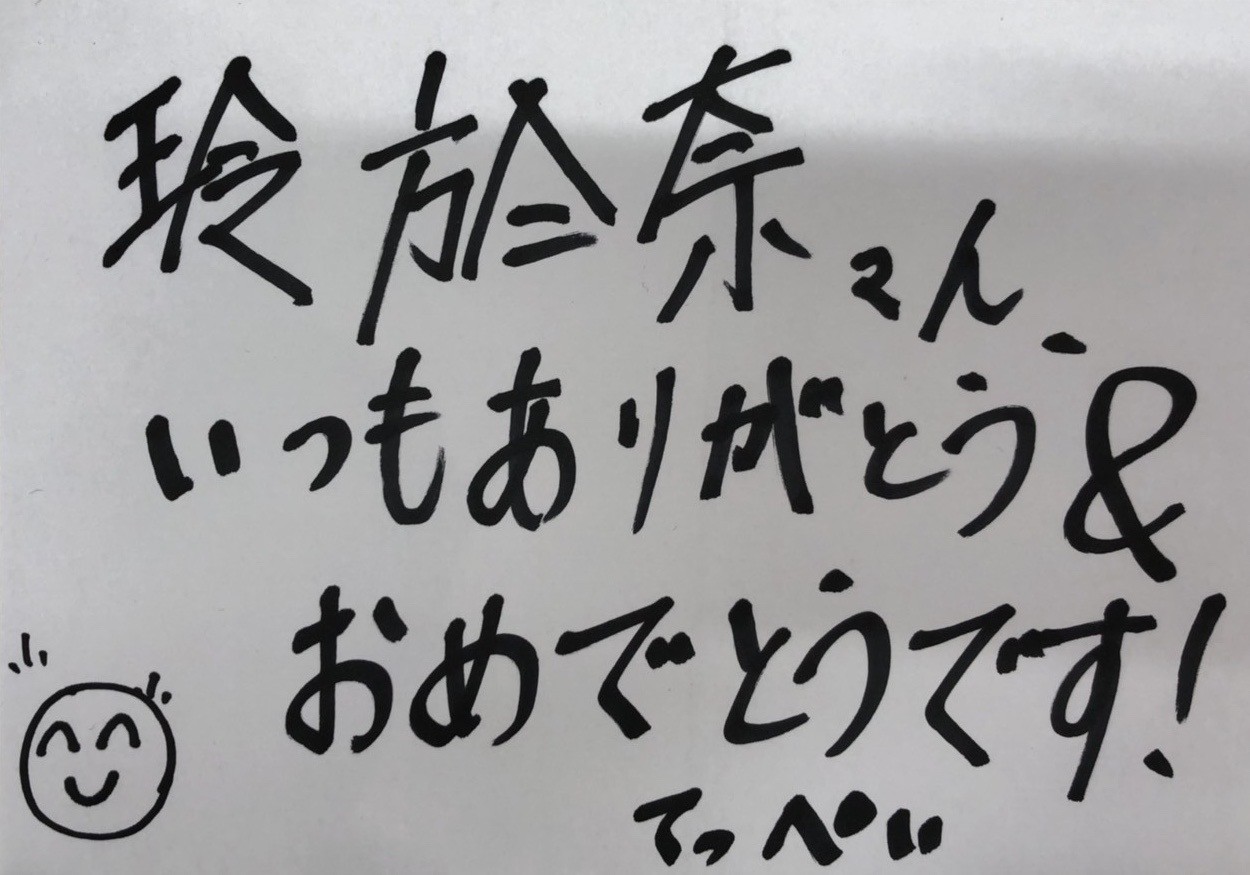 玲於奈さん、
いつもありがとう&
おめでとうです!
てっぺい